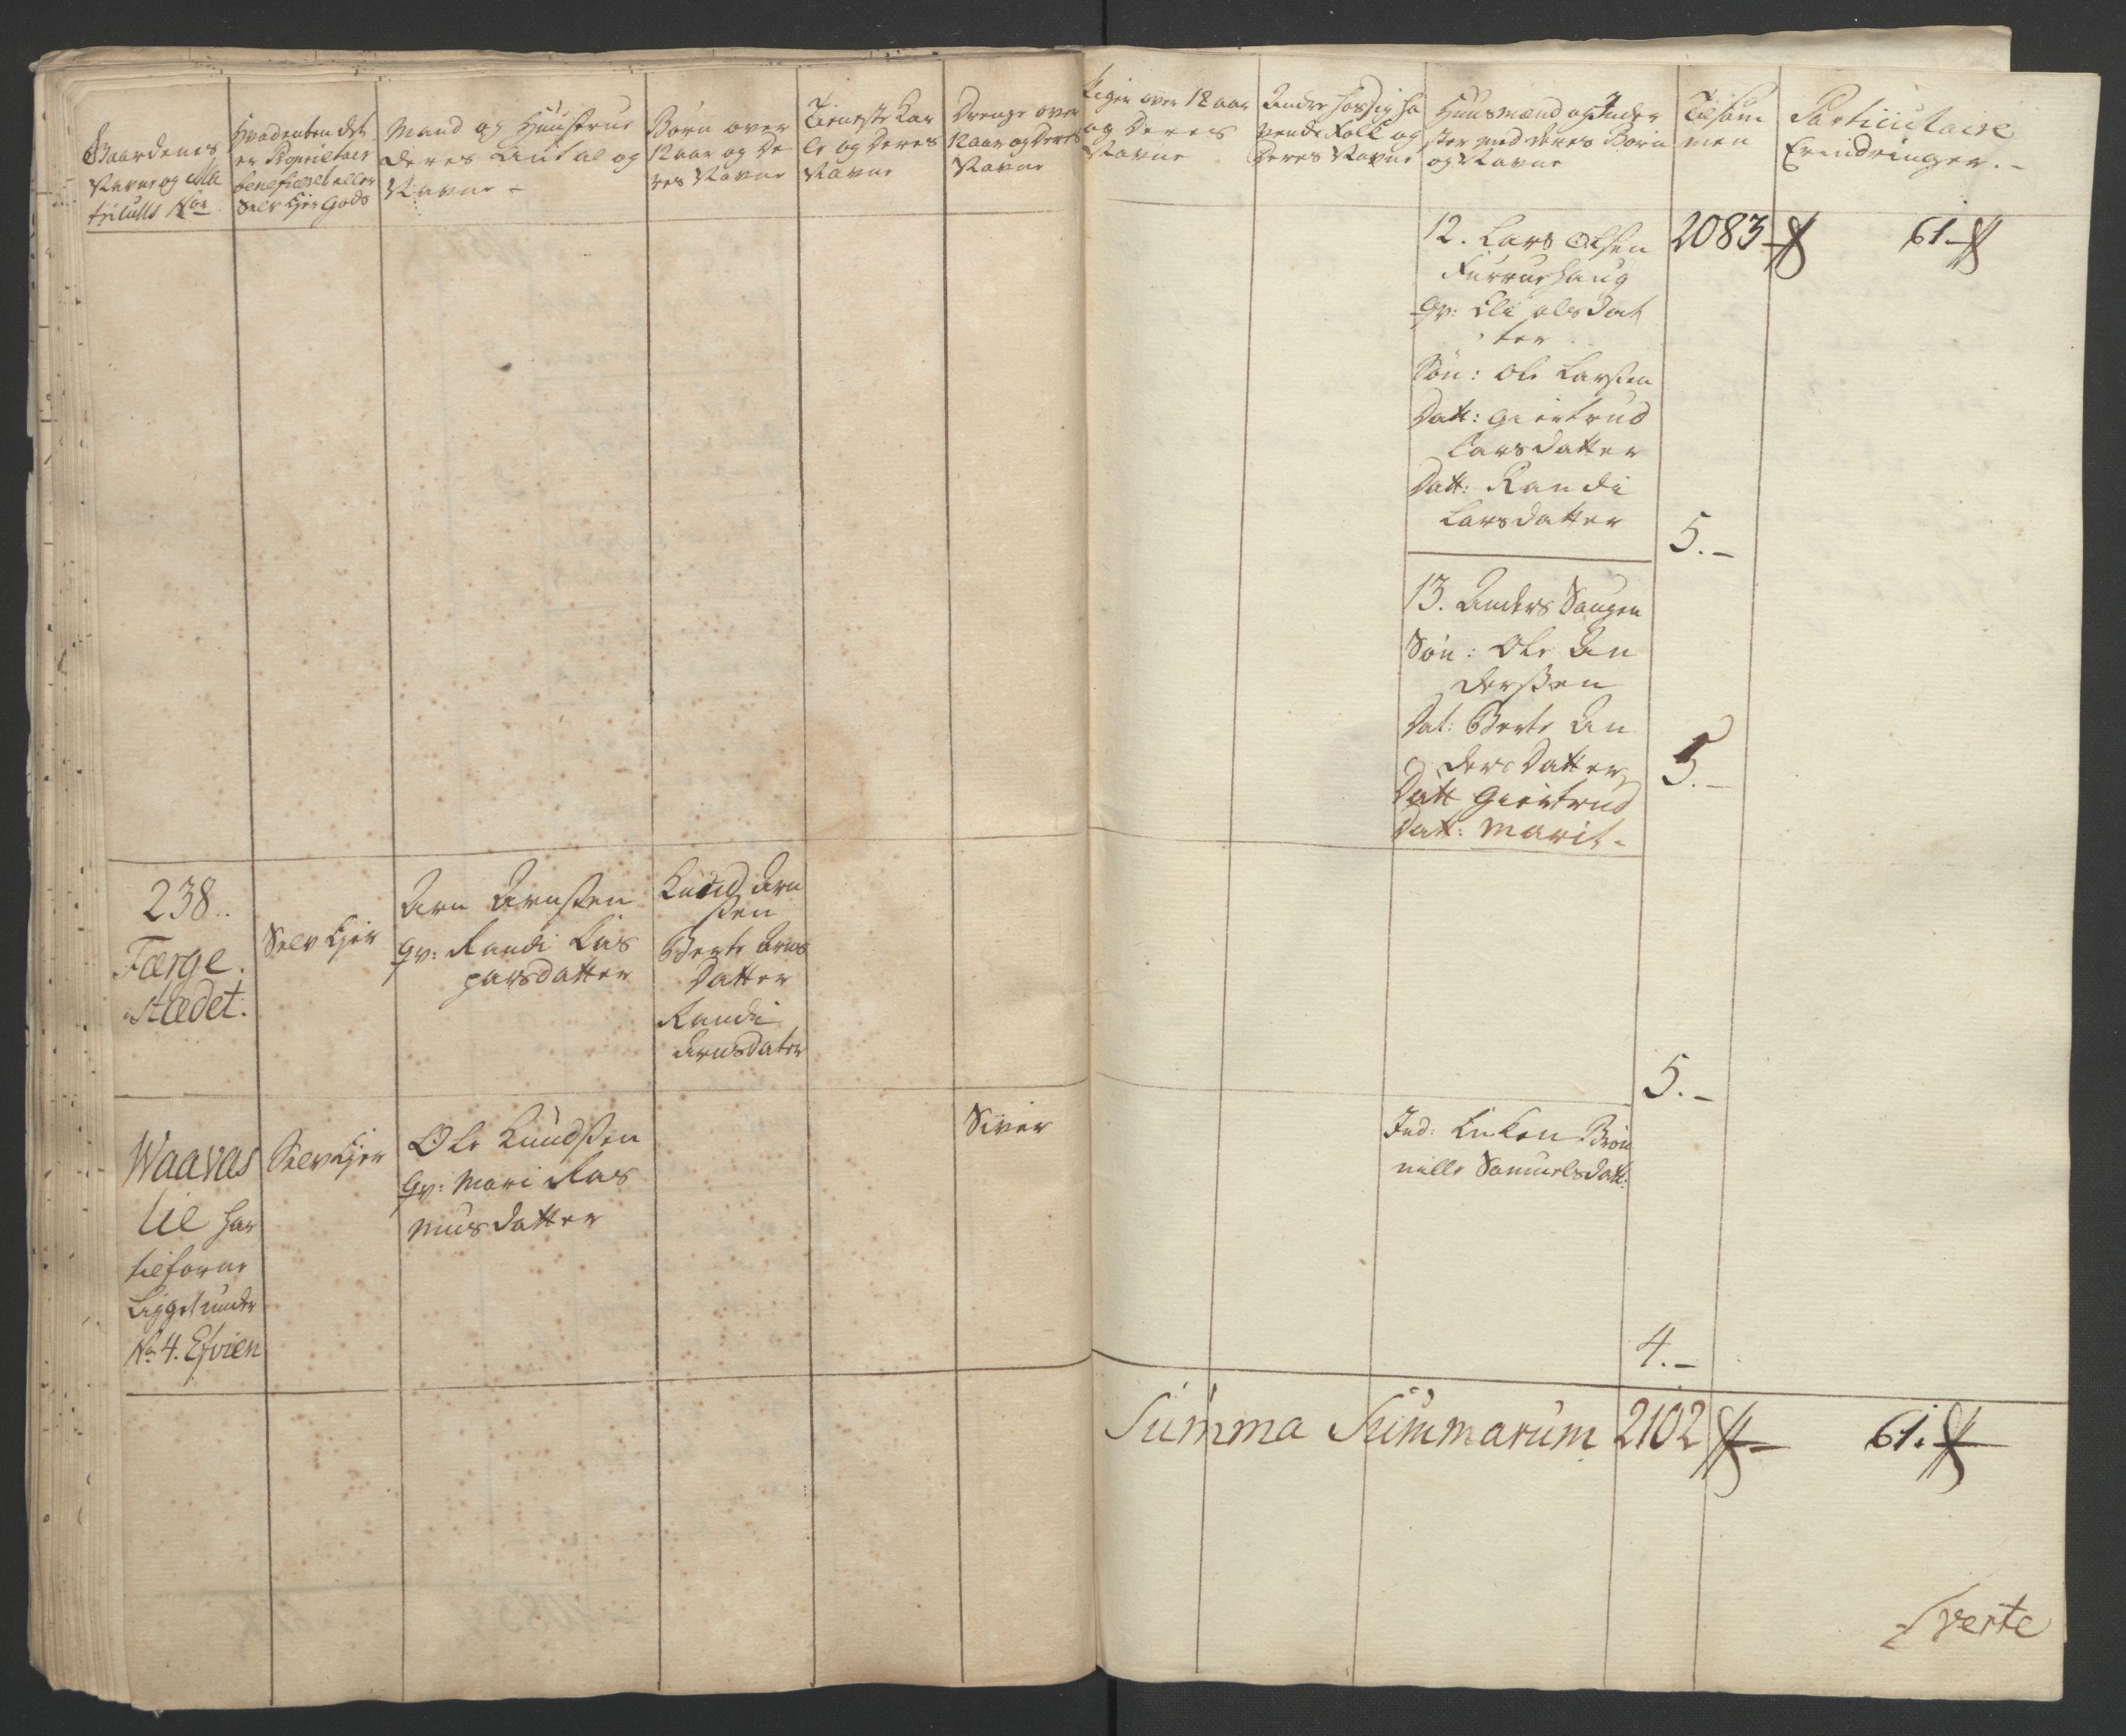 Gaardenes
Navne og Ma
triculls No:
Hvadenten det
er Proprietair
beneficeret eller
Selv Ejer Gods
Mand og Hüüstrue
deres Antal og
Navne -
Børn over
12 aar og De
res Navne
Tieneste Kar
le og Deres
Navne
Drenge over
12 aar og Deres
Navne
Piger over 12 aar
og Deres
Navne
Andre hos sig ha
vende Folk og
Deres Navne
Huusmænd og Inder
ster med deres Børn
og Navne
Tilsam
men
Particulaire
Erindringer. -
12. Lars Olsen
Furruehaug
Qv: Eli olsdat
ter
Søn: Ole Larsen
Datt: Giertrud
Larsdatter
Datt: Randi
Larsdatter
2083
61.
5.-
13. Anders Haugen
Søn: Ole An
derssen
Dat: Berte An
ders Datter
Datt Giertrud
Datt: Marit.
5.-
238..
Færge.
stædet.
Selv Ejer
Arn Arnssen
Qv: Randi Cas
parsdatter
Knud Arn
ssen
Berte Arns
Datter
Randi
Arnsdater
5.-
Waavas
lie har
tilforne
Ligget under
No 4. Efvien
Selv Ejer
Ole Knudssen
Qv: Mari Ras
mus datter
Siver
Ind: Enken Brou
nille Samuelsdatt:
4.-
Summa Summarum 2102
61.
verte